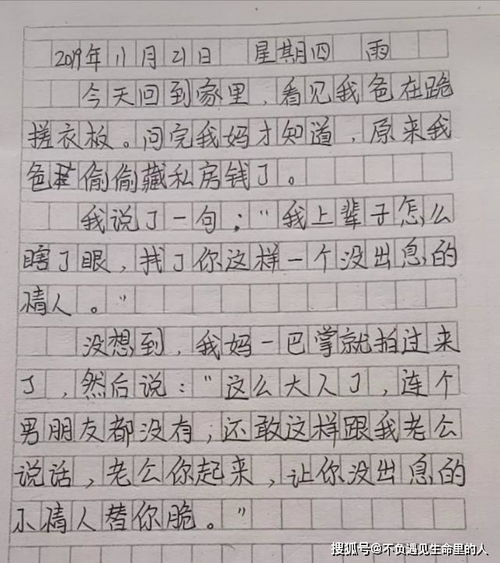 2019年11月21日 星期四 雨
今天回到家里，看见我爸在跪
搓衣板。问完我妈才知道，原来我
爸偷偷藏私房钱了。
我说了一句："我上辈子怎么
瞎了眼，找了你这样一个没出息的
情人。"
没想到，我妈一巴掌就拍过来
了，然后说："这么大人了，连个
男朋友都没有，还敢这样跟我老公
说话，老公你起来，让你没出息的
小情人替你跪。"
搜狐号@不负遇见生命里的人